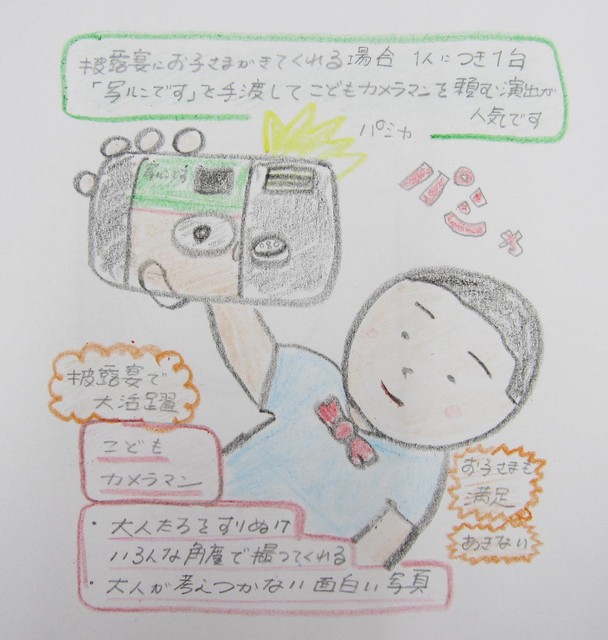 披露宴にお子さまがきてくれる場合 1人につき1台
「写ルンです」を手渡して こどもカメラマンを頼む演出が
人気です
パシャ
パシャ
披露宴で
大活躍
こども
カメラマン
お子さまも
満足
あきない
・大人たちをすりぬけ
いろんな角度で撮ってくれる
・大人が考えつかない 面白い写真